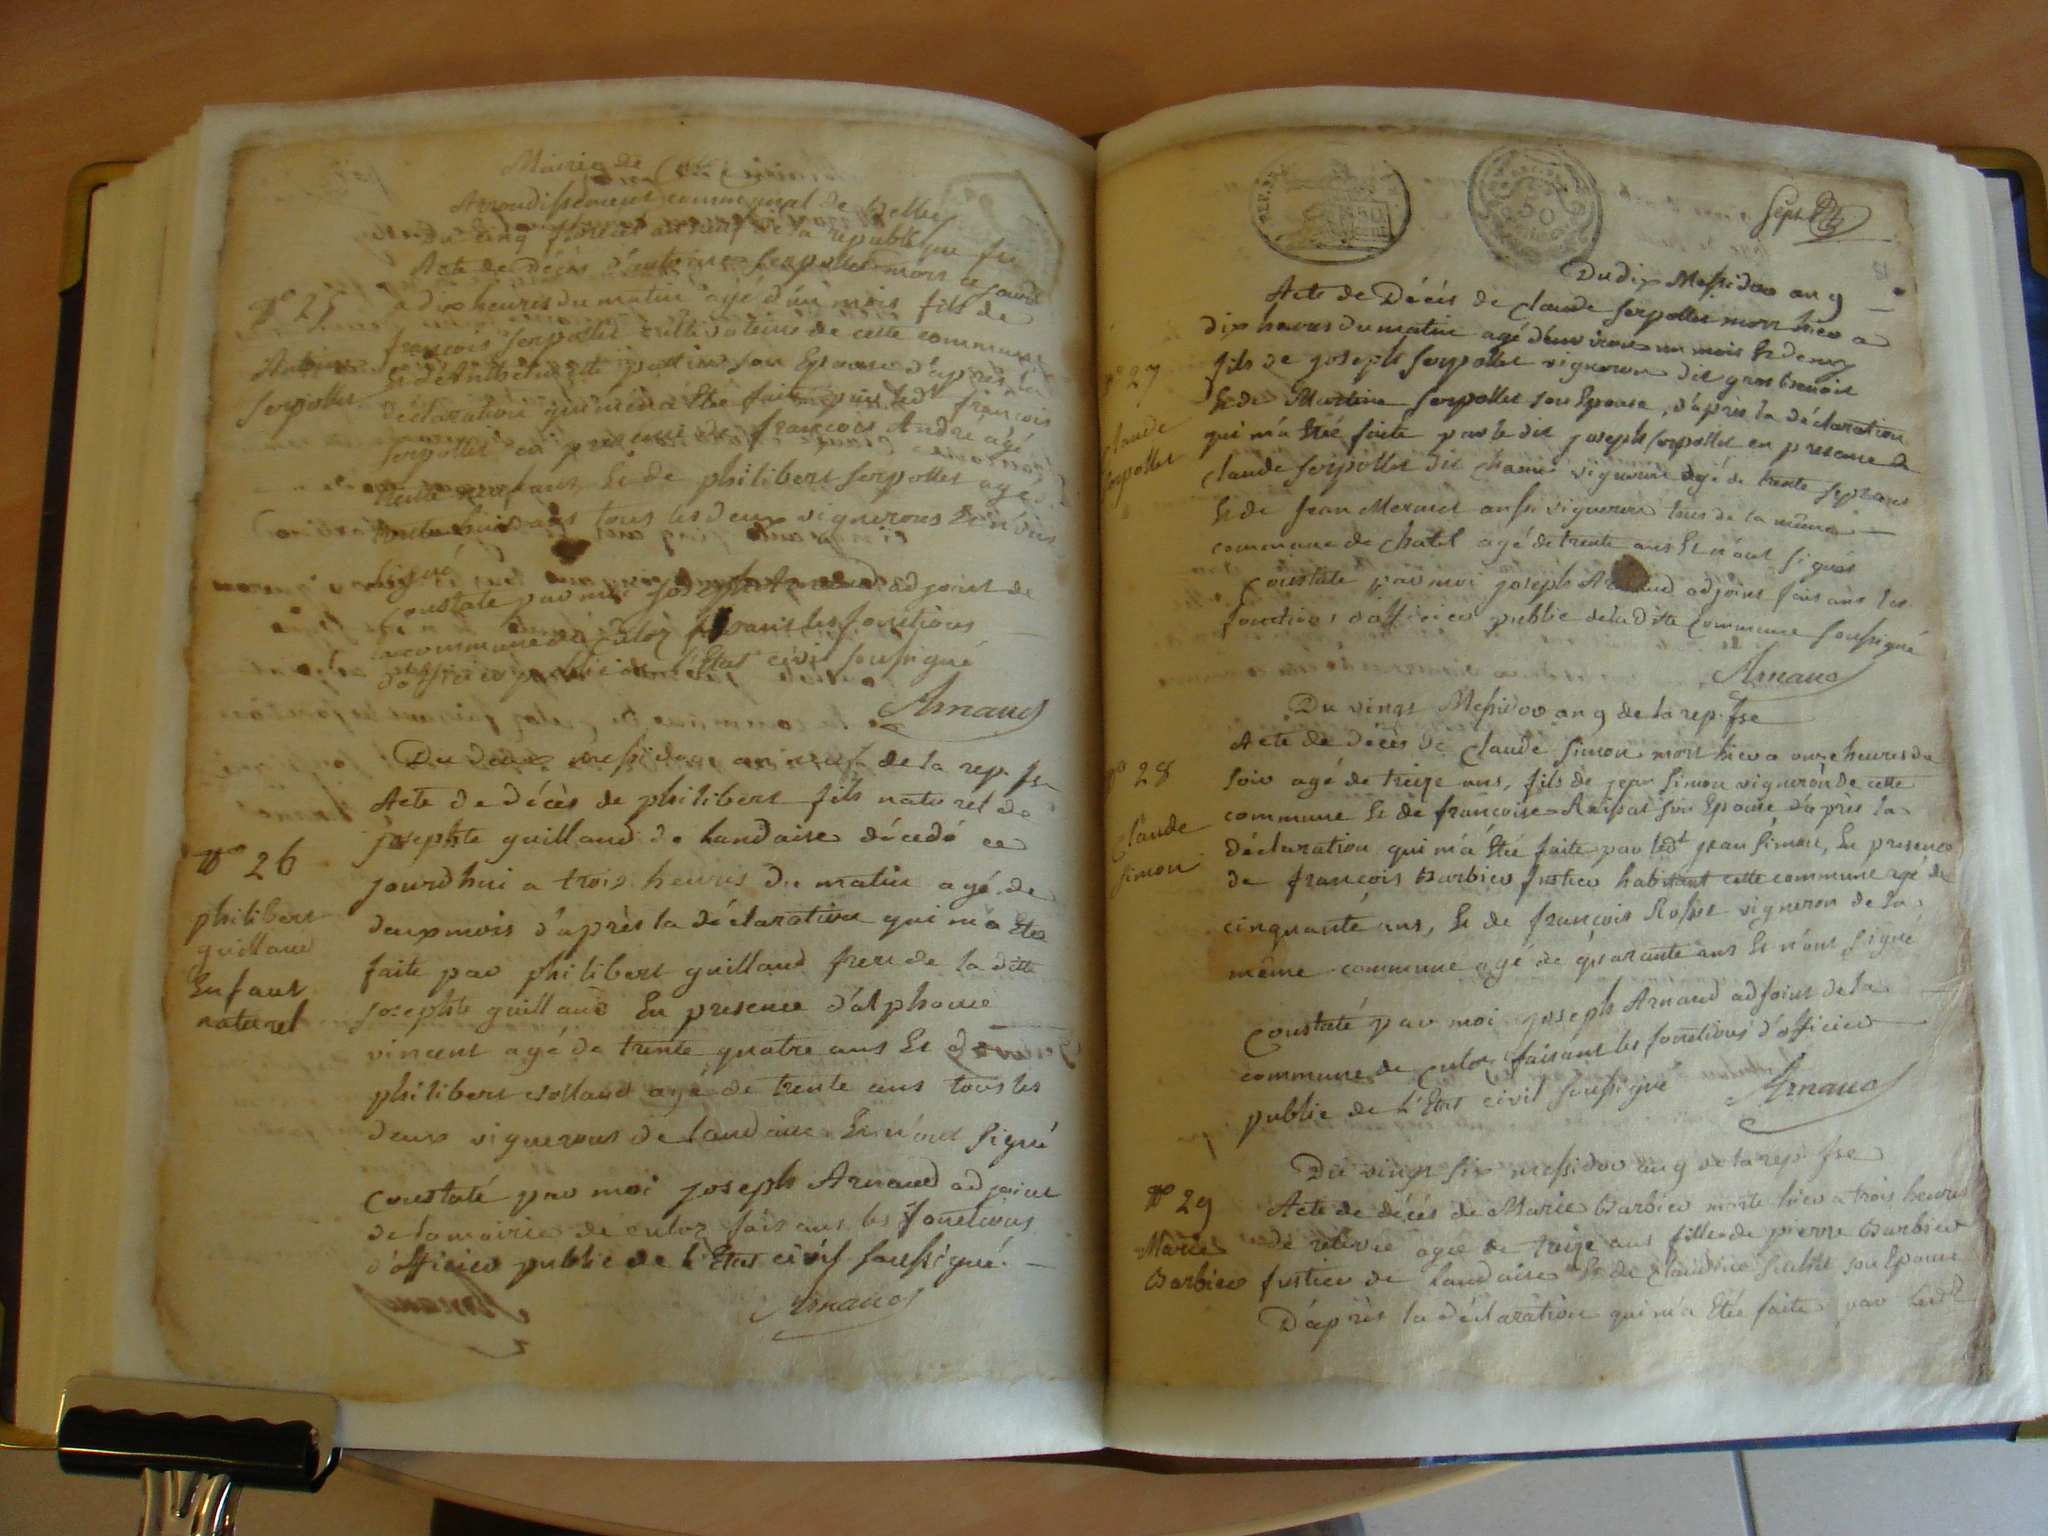 Mairie de
Arrondissement communal de Belley
Du cinq floréal an neuf de la republique fse
Acte de Décès d'antoine serpollet mort ce jourd
N° 25
a dix heures du matin agé d'un mois fils de
françois serpollet cultivateur de cette commune
Antoine
serpollet
son Epouse d'après la
déclaration qui m'a été faite par led françois
serpollet en presence de françois André agé
ans Et de philibert serpollet agé
ans tous les deux vignerons Et n'ont
signé
Constaté par moi joseph Arnaud adjoint de
la commune de Culoz faisans les fonctions
d'officier public de l'Etat civil soussigné
Arnaud
Du deux messidor an neuf de la rep. fse
Acte de décès de philibert fils naturel de
josephte guilland de landaise décedé ce
N° 26
jourdhui a trois heures du matin agé de
philibert
guilland
Enfant
naturel
deux mois d'après la déclaration qui m'a Etée
faite par philibert guilland frere de la ditte
josephte guilland En presence d'alphonse
vincent agé de trente quatre ans Et d
philibert Jolland agé de trente ans tous les
deux vignerons de landaise Et n'ont signé
Constaté par moi joseph Arnaud adjoint
de la mairie de culoz faisans les fonctions
d'officier public de l'Etat civil soussigné.
Arnaud
50
Sept
Du dix Messidor an 9
Acte de Décès de Claude serpollet mort hier a
dix heures du matin agé d'environ un mois Et demy
N° 27
fils de joseph serpollet vigneron dit gros benoit
Et de Martine serpollet son Epouse, d'après la déclaration
Claude
serpollet
qui m'a Etée faite par le dit joseph serpollet en presence de
Claude serpollet dit vigneron agé de trente sept ans
Et de Jean Mermet aussi vigneron tous de la même
commune de agé de trente ans Et n'ont signés
Constaté par moi joseph Arnaud adjoint faisans les
fonctions d'officier public de la ditte Commune soussigné
Arnaud
Du vingt Messidor an 9 de la rep. fse
Acte de décès de Claude Simon mort hier a onze heures du
N° 28
soir agé de treize ans, fils de jean Simon vigneron de cette
commune Et de françoise son Epouse d'après la
Claude
Simon
déclaration qui m'a Etée faite par ledt jean Simon, En presence
de françois Barbier fustier habitant cette commune agé de
cinquante ans, Et de françois vigneron de la
même commune agé de quarante ans Et n'ont signé
Constaté par moi joseph Arnaud adjoint de la
commune de culoz faisant les fonctions d'officier
public de l'Etat civil soussigné
Arnaud
Du vingt six messidor an 9 de la rep. fse
N° 29
Acte de décés de Marie Barbier morte hier a trois heures
Marie
Barbier
de relevée agée de treize ans fille de pierre Barbier
fustier de landaise Et de Claudine son Epouse
D'après la déclaration qui m'a Etée faite par Ledt